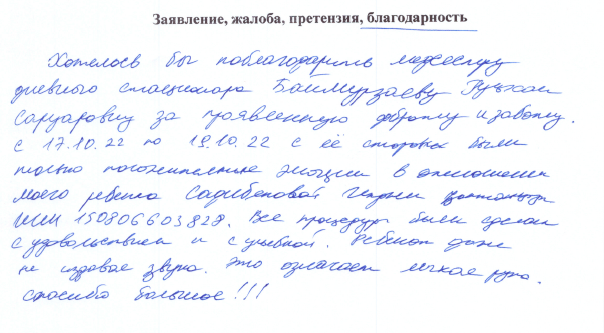 Заявление, жалоба, претензия, благодарность
Хотелось бы поблагодарить медсестру
дневного стационара Баймурзаеву
за проявленную доброту и заботу.
с 17.10.22 по 19.10.22 с её стороны были
только положительные эмоции в отношении
моего ребенка Садибековой
ИИН 150806603828. Все процедуры были сделаны
с удовольствием и с улыбкой. Ребенок даже
не издавал звука. Это означает легкая рука.
Спасибо большое!!!